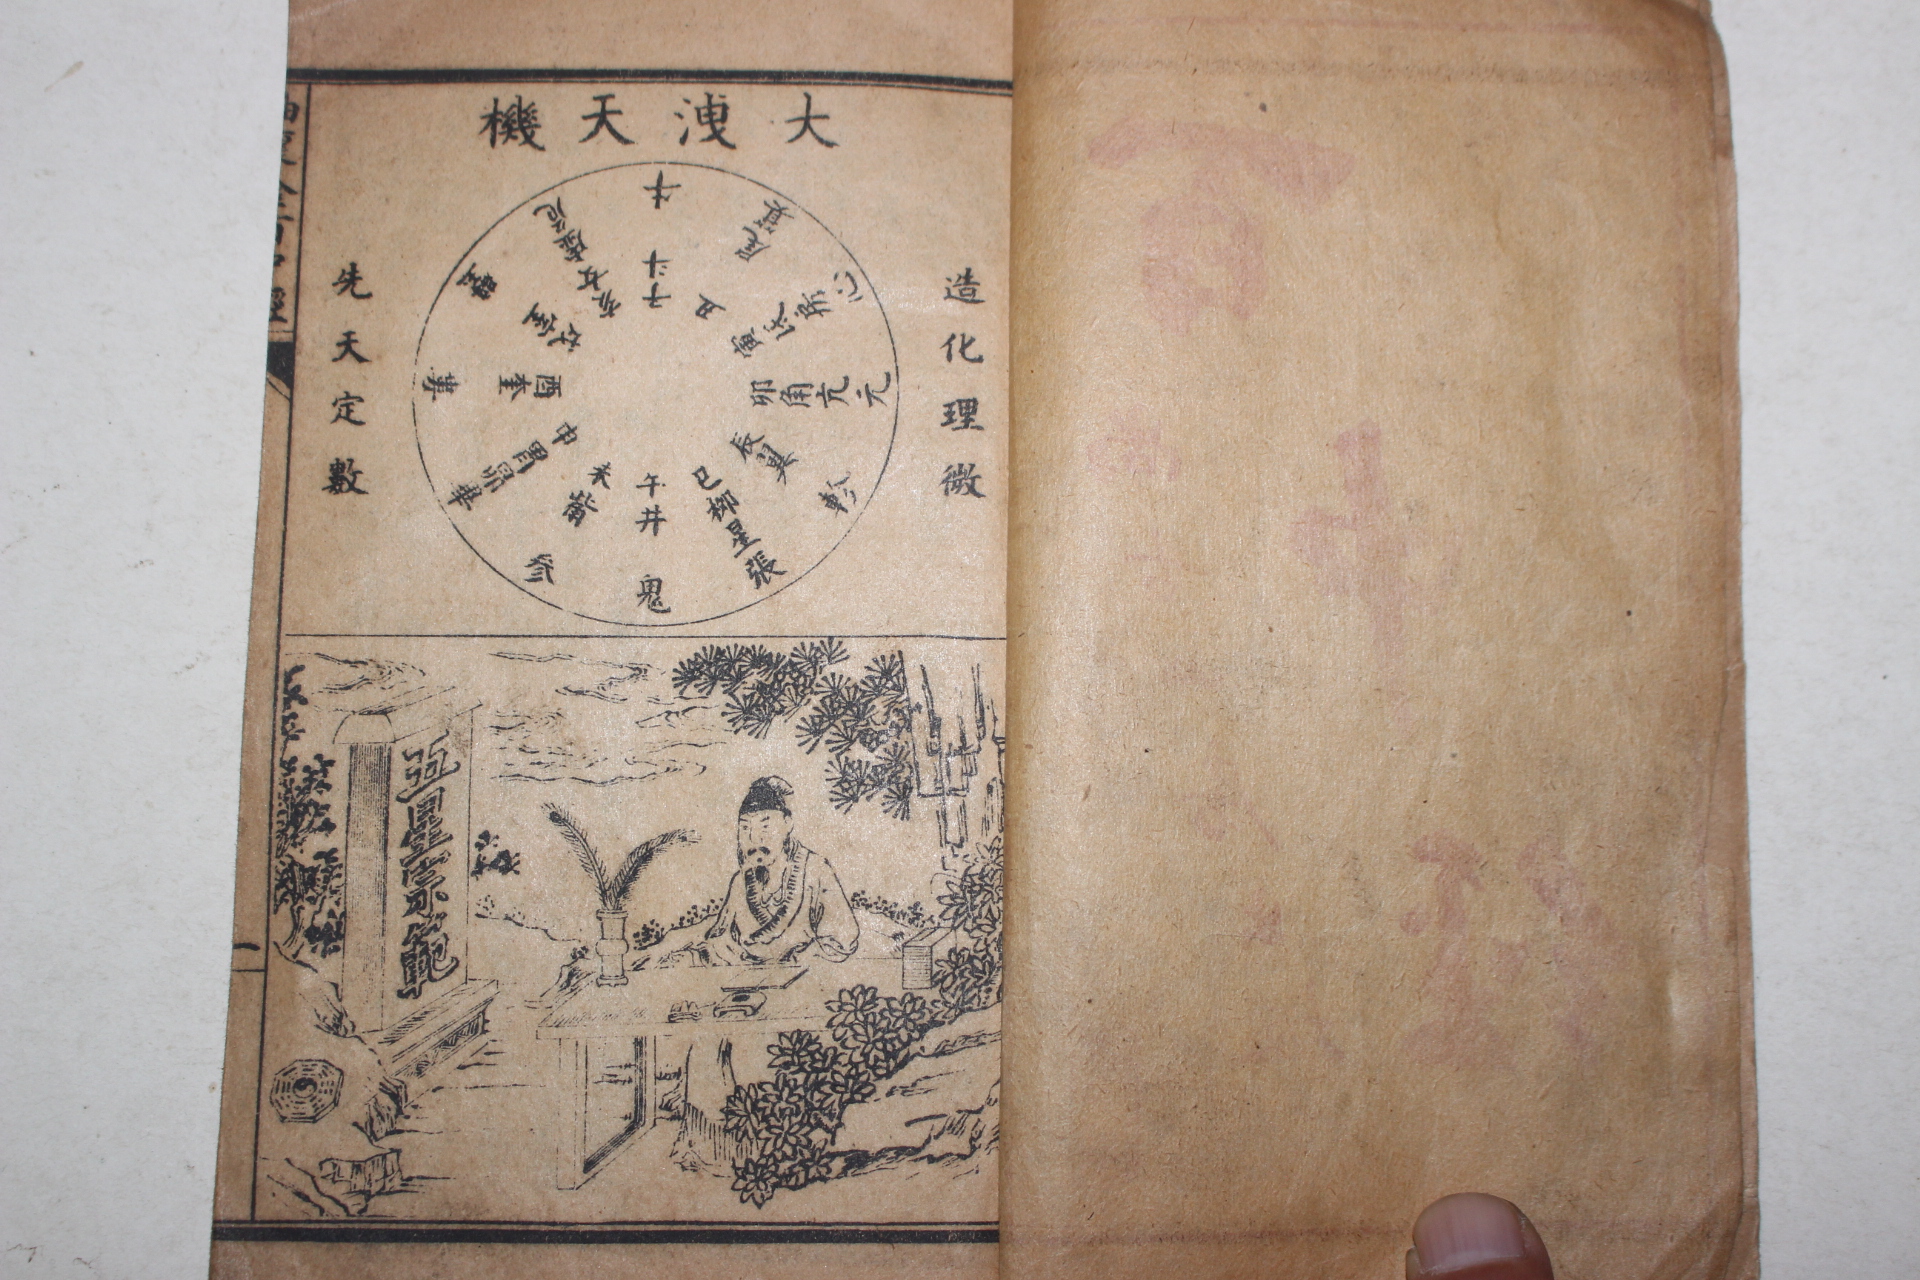 大洩天機
造化理微
先天定數
斗
斗
子
丑
尾
箕
寅
氐
房
心
卯
角
亢
元
辰
翼
軫
巳
柳
星
張
午
井
鬼
未
觜
參
申
胃
昴
畢
酉
奎
婁
戌
室
壁
亥
女
虛
危
五星宗範
一